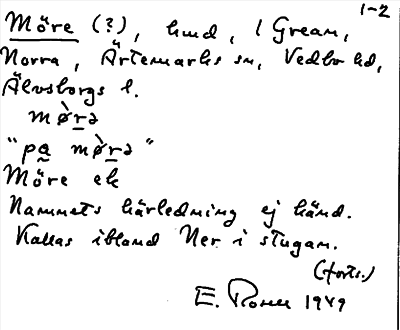 1-2
Möre (?), hmd, i Gream,
Norra, Ärtemarks sn, Vedbo hd,
Älvsborgs l.
mø̀rə
"pa mø̀rə"
Möre ek
Namnets härledning ej känd.
Kallas ibland Ner i stugan.
(forts.)
E. 1949